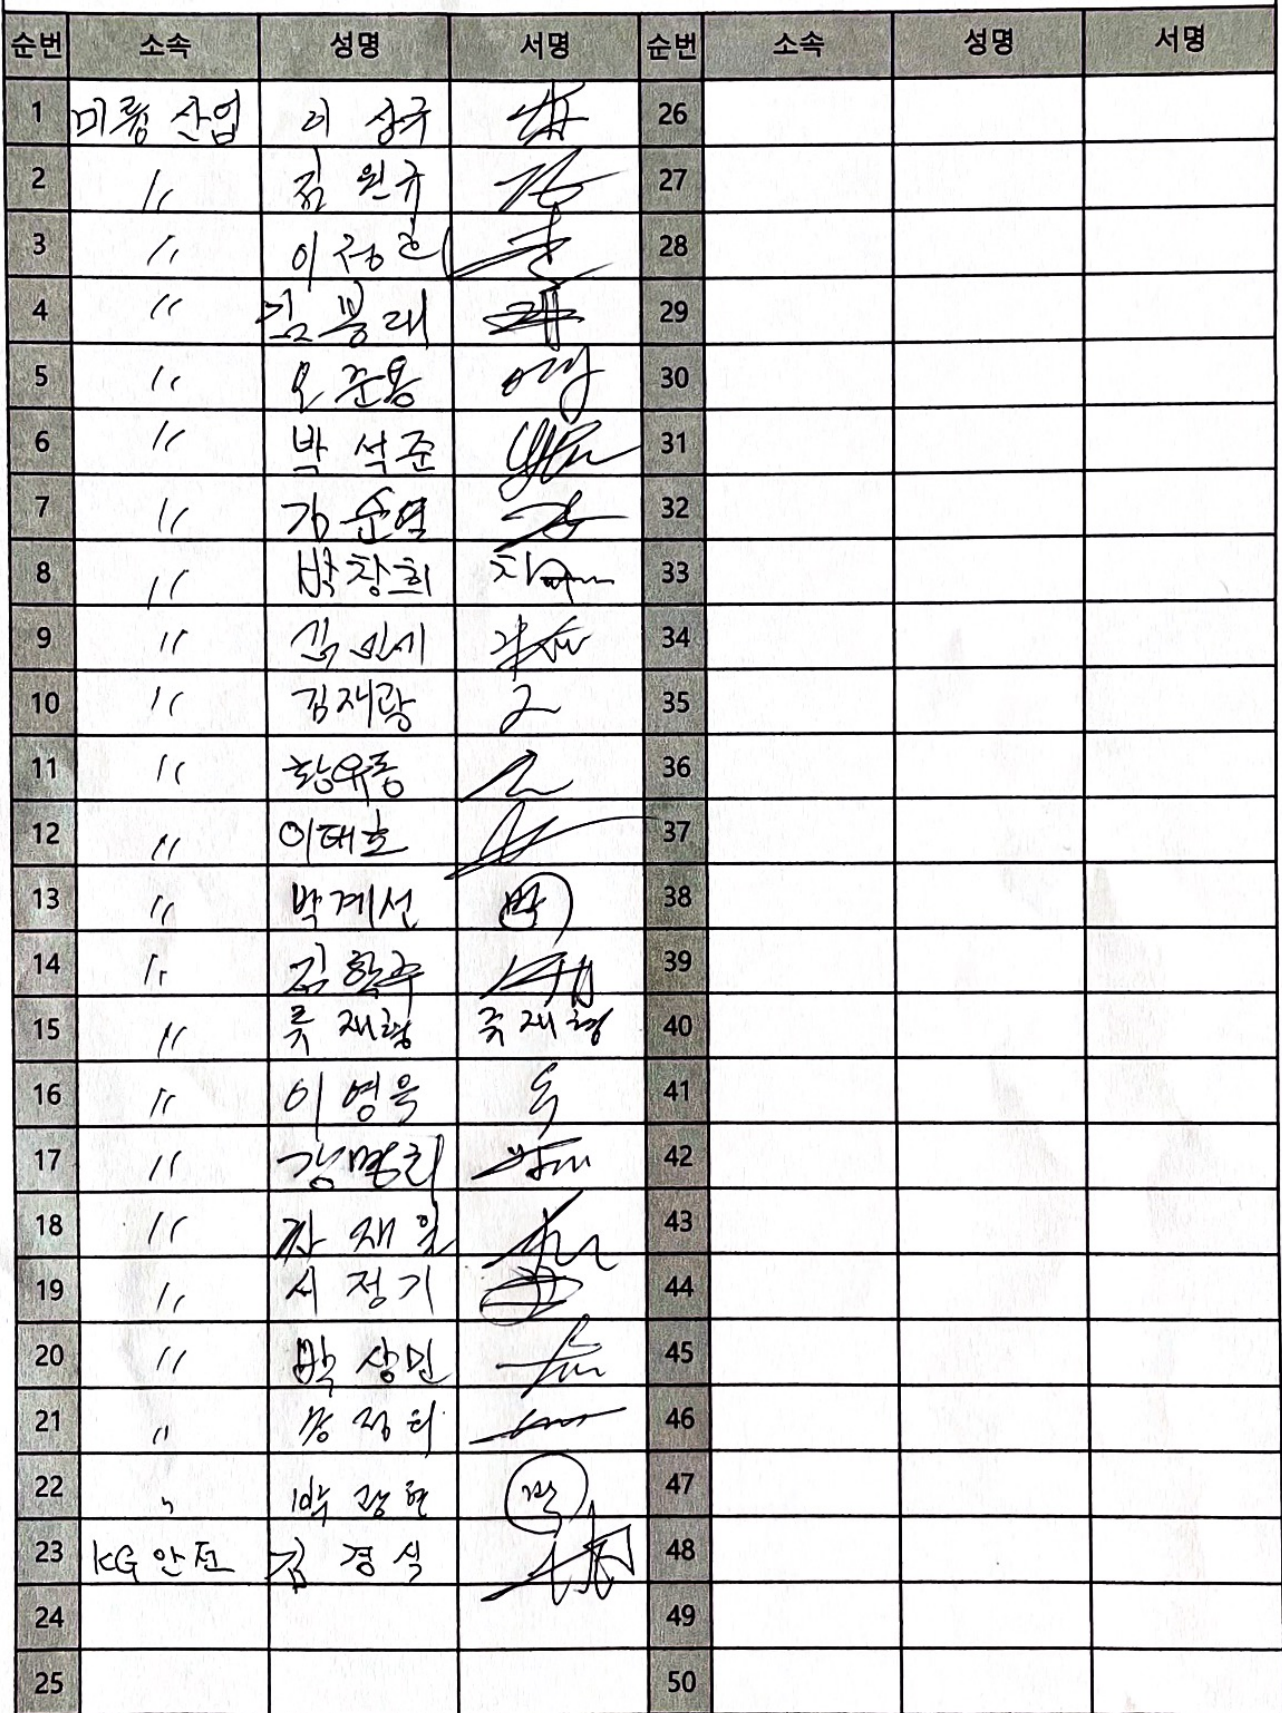 순번 소속 성명 서명 순번 소속 성명 서명
1 미륭 산업 이 상규 26
2 〃 김 원규 27
3 〃 이정헌 28
4 〃 김봉래 29
5 〃 오 준용 30
6 〃 박 석준 31
7 〃 김순열 32
8 〃 박창희 33
9 〃 34
10 〃 김재광 35
11 〃 황유룡 36
12 〃 이태호 37
13 〃 박계선 38
14 〃 김학주 39
15 〃 류재형 류재형 40
16 〃 이영욱 41
17 〃 강명희 42
18 〃 43
19 〃 서정기 44
20 〃 박상민 45
21 〃 46
22 〃 박광현 47
23 KG 안전 김경식 48
24 49
25 50